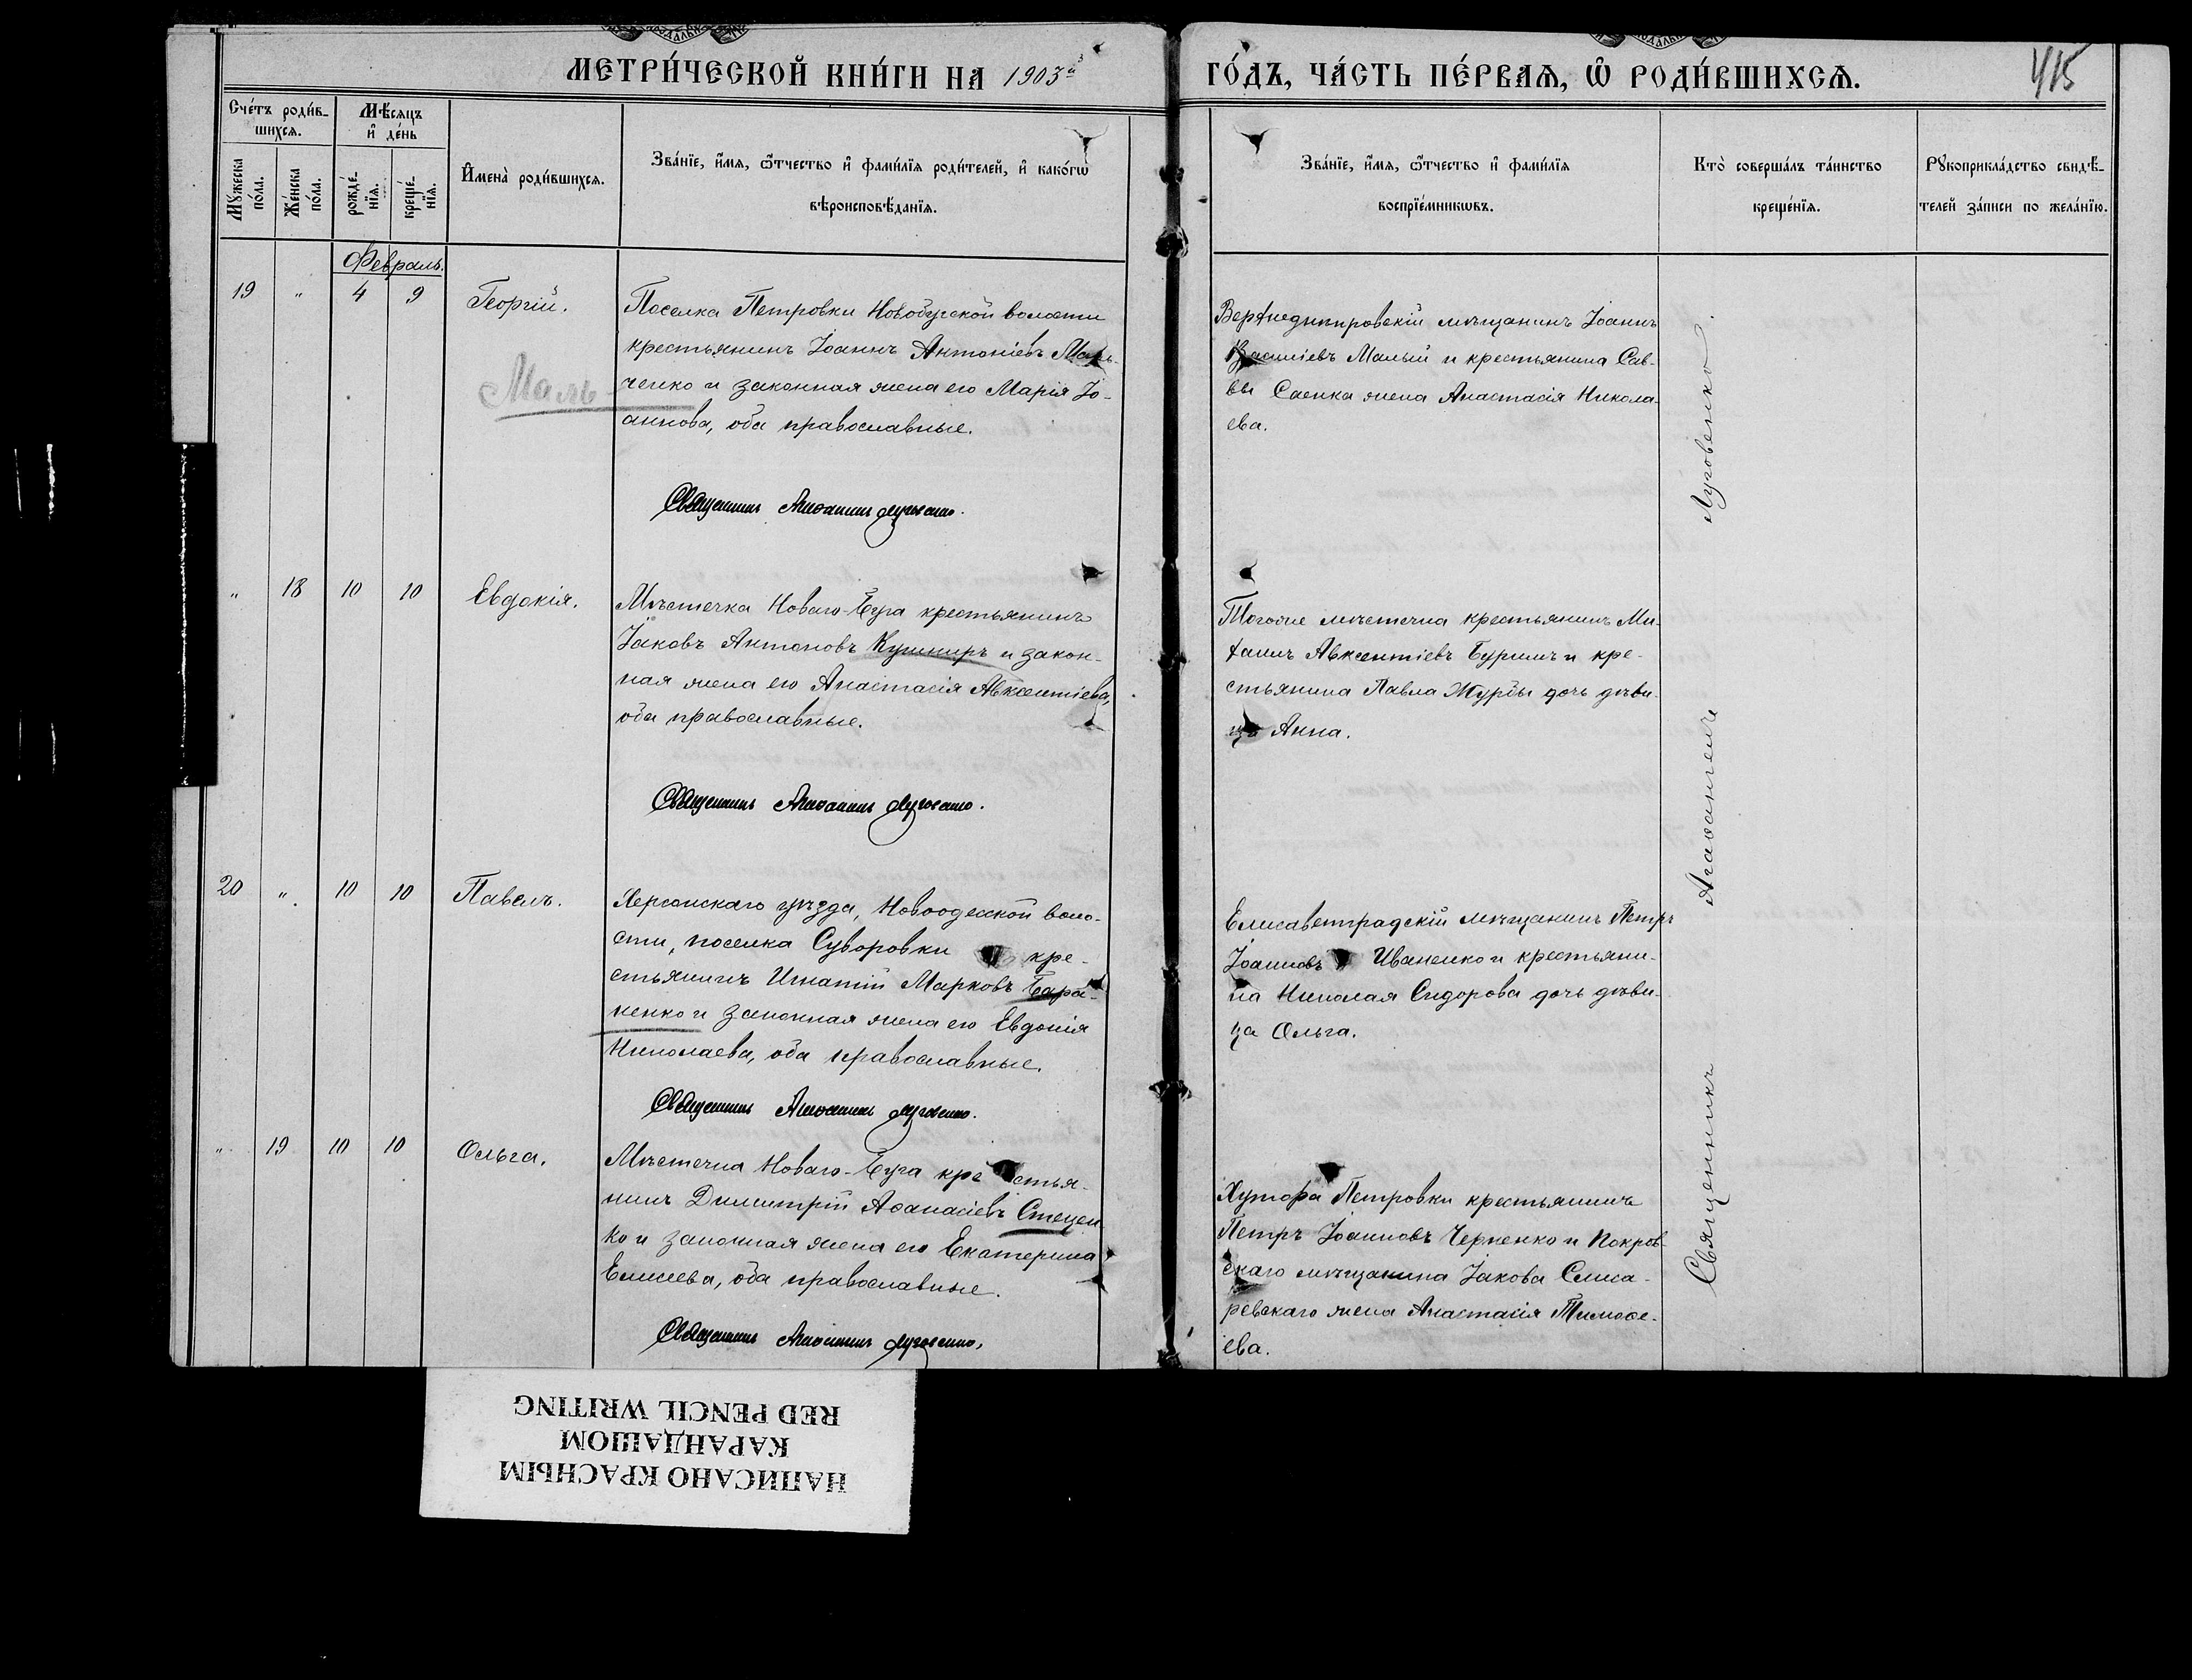 МЕТРИ́ЧЕСКОЙ КНИ́ГИ НА 1903й
ГО́ДЪ, ЧА́СТЬ ПЕ́РВАѦ, Ѿ РОДИ́ВШИХСѦ.
415
Сче́тъ роди́в-
шихсѧ.
Мꙋжеска по́ла.
Же́нска по́ла.
Мѣ́сѧцъ
и҆ де́нь
рожде́-нїѧ.
креще́-нїѧ.
И҆мена̀ роди́вшихсѧ.
Зва́нїе, и҆́мѧ, ѻ҆́тчество и҆ фами́лїѧ роди́телей, и҆ како́гѡ
вѣроисповѣ́данїѧ.
Зва́нїе, и҆́мѧ, ѻ҆́тчество и҆ фами́лїѧ
воспрїе́мникѡвъ.
Кто̀ соверша́лъ та́инство
креще́нїѧ.
Рꙋкоприкла́дство свидѣ́-
телей за́писи по жела́нїю.
Февраль.
19 " 4 9 Георгій.
Поселка Петровки Новобугской волости
крестьянинъ Іоаннъ Антоніевъ Маль-
ченко и законная жена его Марія Іо-
аннова, оба православные.
Маль
Священникъ Агаѳангелъ Луговенко.
Верхнеднѣпровскій мѣщанинъ Іоаннъ
Василіевъ Малый и крестьянина Сав-
вы Саенка жена Анастасія Никола-
ева.
" 18 10 10 Евдокія.
Мѣстечка Новаго-Буга крестьянинъ
Іаковъ Антоновъ Кушниръ и закон-
ная жена его Анастасія Авксентіева,
оба православные.
Священникъ Агаѳангелъ Луговенко.
Тогоже мѣстечка крестьянинъ Ми-
хаилъ Авксентіевъ и кре-
стьянина Павла Журбы дочь дѣви-
ца Анна.
20 " 10 10 Павелъ.
Херсонскаго уѣзда, Новоодесской воло-
сти, поселка Суворовки кре-
стьянинъ Игнатій Марковъ Бара-
ненко и законная жена его Евдокія
Николаева, оба православные.
Священникъ Агаѳангелъ Луговенко.
Елисаветградскій мѣщанинъ Петръ
Іоанновъ Иваненко и крестьяни-
на Николая Сидорова дочь дѣви-
ца Ольга.
" 19 10 10 Ольга.
Мѣстечка Новаго-Буга крестья-
нинъ Димитрій Аѳанасіевъ Стецен
ко и законная жена его Екатерина
Елисеева, оба православные.
Священникъ Агаѳангелъ Луговенко.
Хутора Петровки крестьянинъ
Петръ Іоанновъ Черненко и Покров-
скаго мѣщанина Іакова Слиса-
ревскаго жена Анастасія Тимоѳе-
ева.
Священникъ Агаѳангелъ Луговенко.
НАПИСАНО КРАСНЫМ
КАРАНДАШОМ
RED PENCIL WRITING